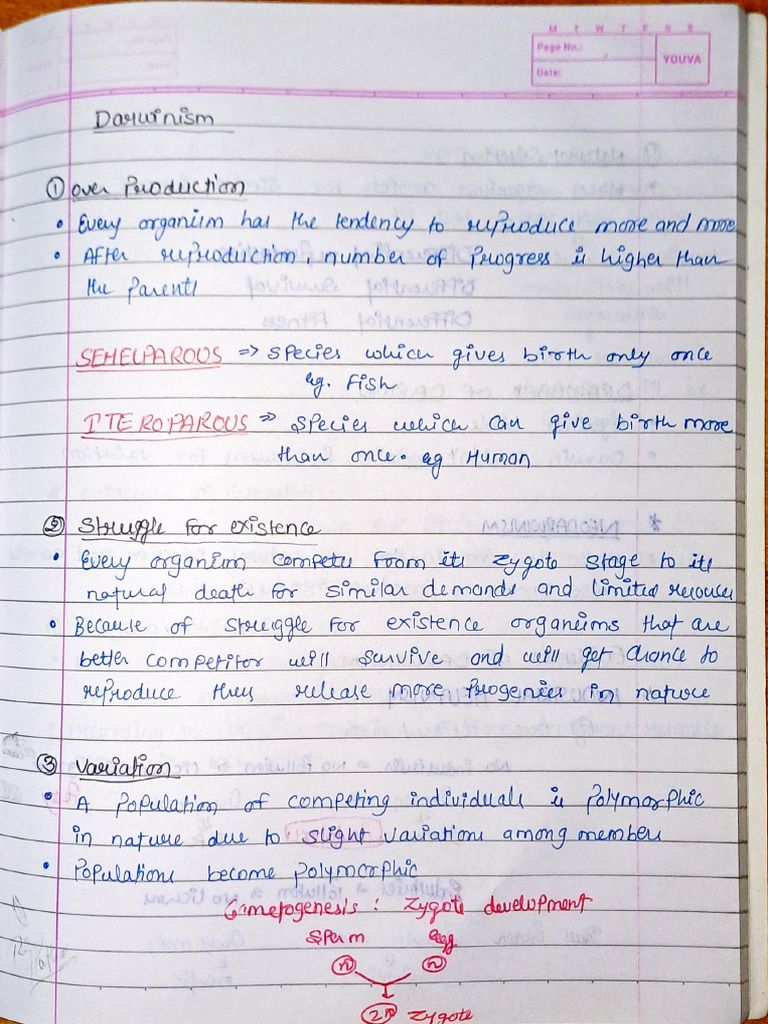 M T W T F S S
Page No.:
YOUVA
Date:
Darwinism
① Over Production
• Every organism has the tendency to reproduce more and more
• After reproduction, number of Progress is higher than
the Parents
SEMELPAROUS => Species which gives birth only once
eg. Fish
ITEROPAROUS => Species which can give birth more
than once. eg Human
② Struggle for existence
• Every organism competes from its zygote stage to its
natural death for similar demands and limited resources
• Because of struggle for existence organisms that are
better competitor will survive and will get chance to
reproduce thus release more progenies in nature
③ Variation
• A population of competing individuals is polymorphic
in nature due to slight variations among members
• Populations become polymorphic
Gametogenesis : Zygote development
Sperm egg
n n
2n Zygote